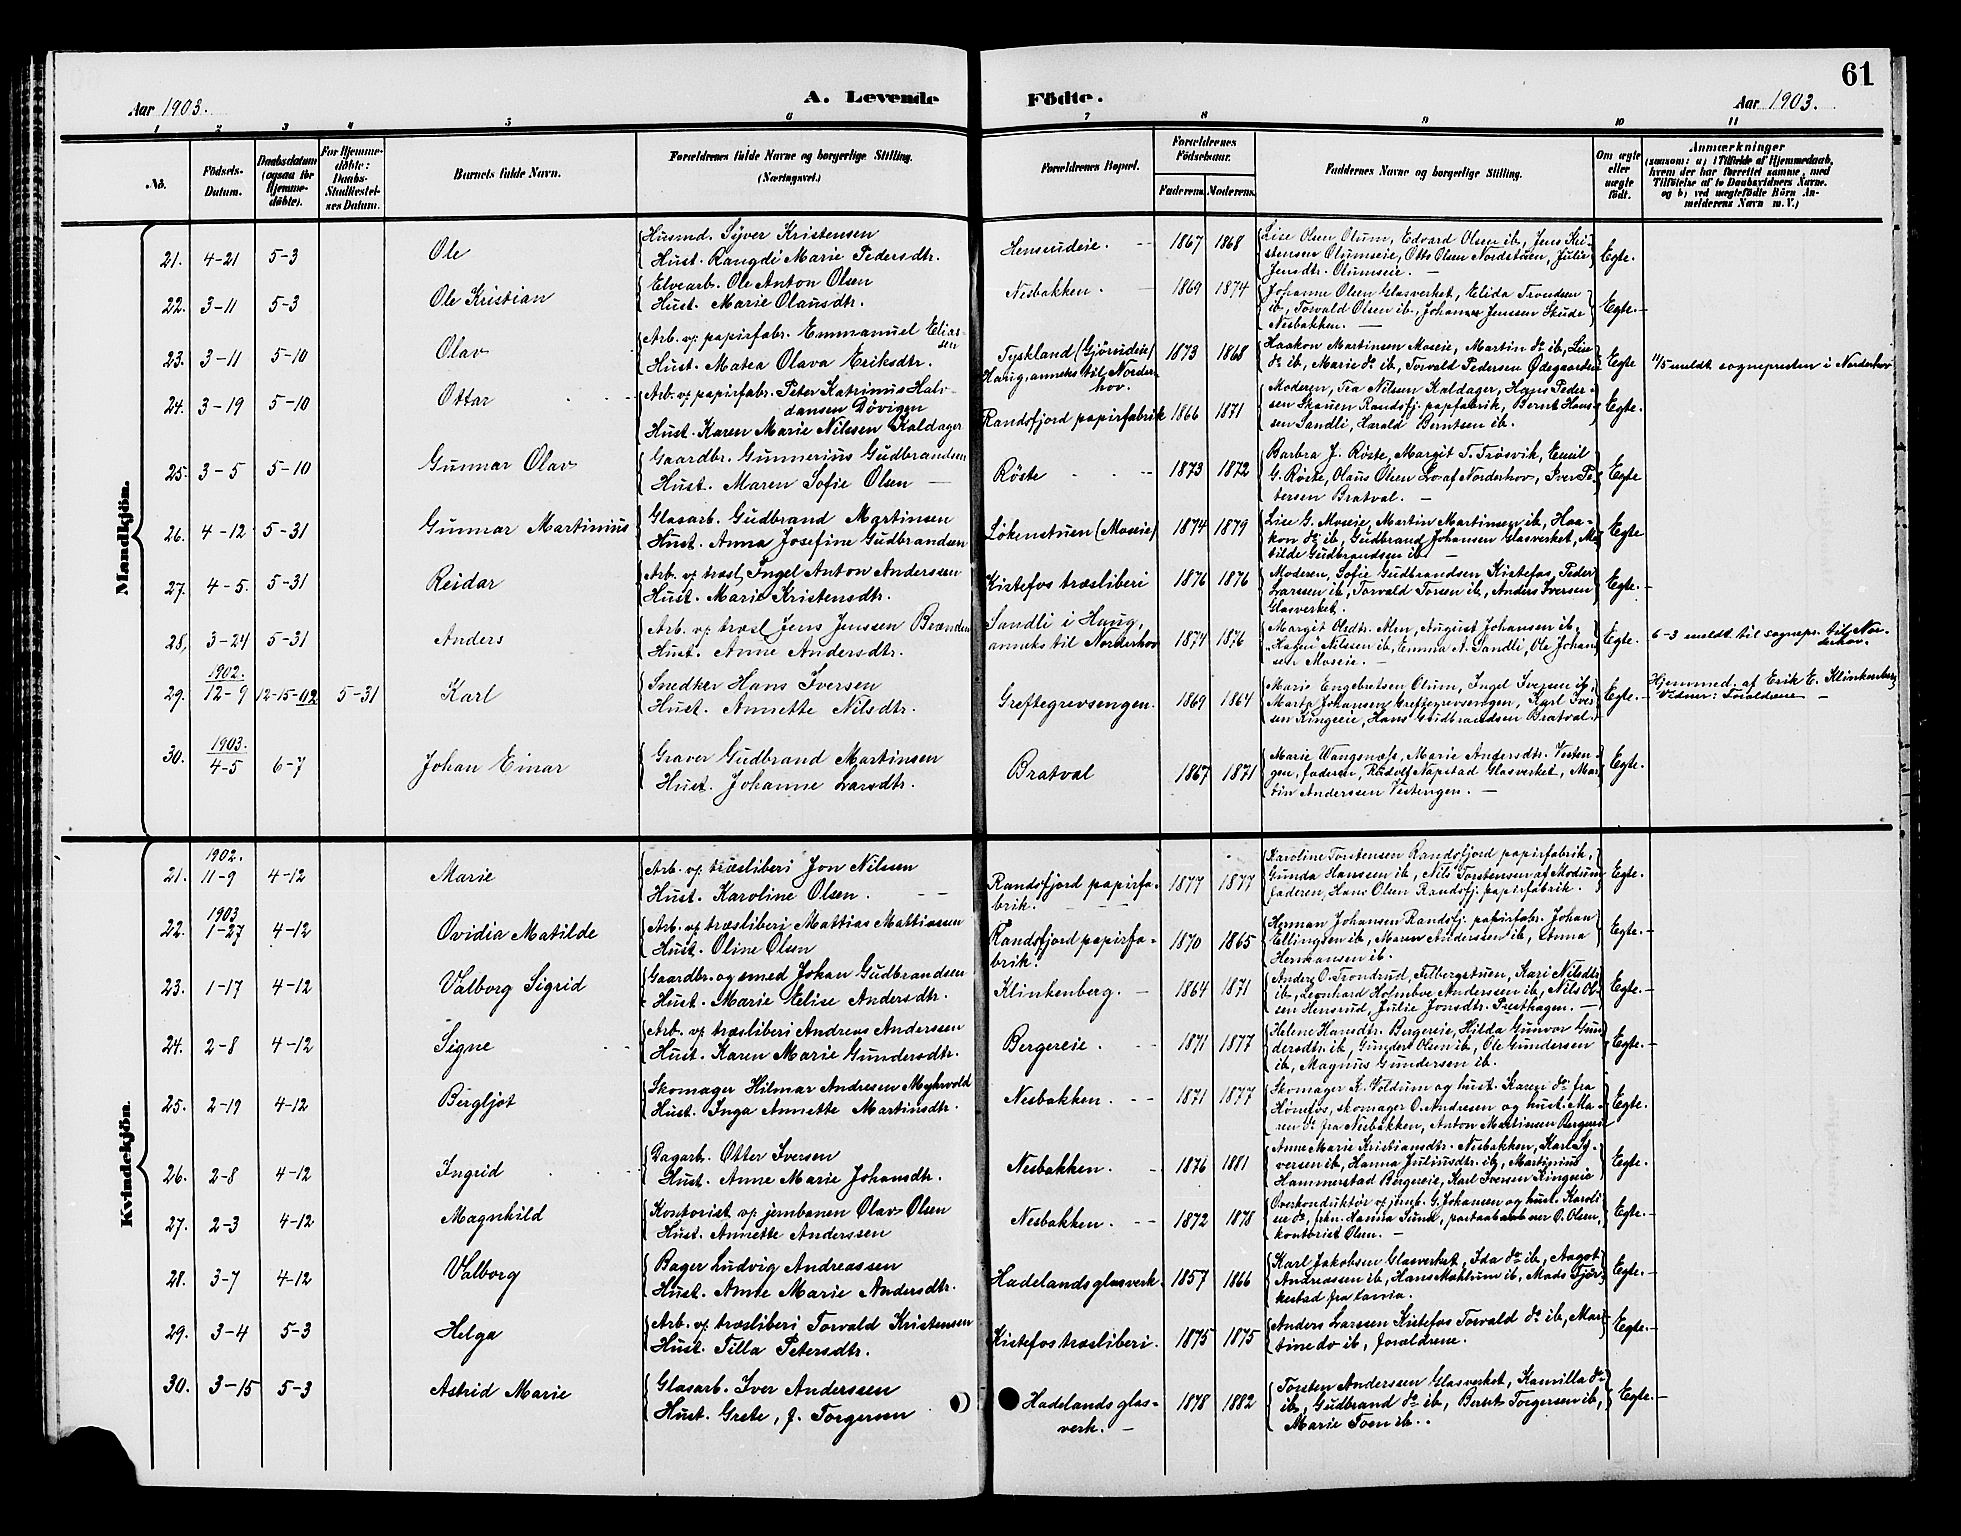 61
Aar 1903. A. Levende Födte. Aar 1903.
1 2 3 4 5 6 7 8 9 10 11
No. Födsels-Datum. Daabsdatum (ogsaa for Hjemmedöbte). For Hjemmedöbte: Daabs-Stadfæstelses Datum. Barnets fulde Navn. Forældrenes fulde Navne og borgerlige Stilling. (Næringsvei.) Forældrenes Bopæl. Forældrenes Födselsaar. Faderens. Moderens. Faddernes Navne og borgerlige Stilling. Om ægte eller uægte födt. Anmærkninger (saasom: a) i Tilfælde af Hjemmedaab, hvem der har forrettet samme, med Tilföielse af to Daabsvidners Navne, og b) ved uægtefödte Börn Anmelderens Navn m. V.)
Mandkjön.
21. 4-21 5-3 Ole
Husmd. Syver Kristensen
Hust. Rangdi Marie Pedersdtr.
Henserudeie. 1867 1868
Lise Olsen Olum, Edvard Olsen ib, Jens Kristensen Olumseie, Otto Olsen Nordstöen, Julie Jensdtr. Olumseie. Egte.
22. 3-11 5-3 Ole Kristian
Elvearb. Ole Anton Olsen
Hust. Marie Olausdtr.
Nesbakken. 1869 1874
Johanne Olsen Glasverket, Elida Trondsen ib, Torvald Olsen ib, Johan Jenssen Skude Nesbakken. Egte.
23. 3-11 5-10 Olav
Arb. v. papirfabr. Emmanuel Eliassen
Hust. Matea Olava Eriksdtr.
Tyskland (Gjörudeie) Haug, anneks til Norderhov. 1873 1868
Haakon Martinsen Moseie, Martin do ib, Lise do ib, Marie do ib, Torvald Pedersen Ødegaarden Egte
11/5 meldt sognepresten i Norderhov
24. 3-19 5-10 Ottar
Arb. v. papirfabr. Peter Katrinus Halvdansen Dövigen
Hust. Karen Marie Nilssen Kaldager
Randsfjord papirfabrik 1866 1871
Moderen, Tea Nilsen Kaldager, Hans Pedersen Skauen Randsfj. papfabrik, Bernt Hanssen Sandli, Harald Berntsen ib. Egte.
25. 3-5 5-10 Gunnar Olav
Gaardbr. Gunnerius Gudbrandsen
Hust. Maren Sofie Olsen
Röste 1873 1872
Barbra J. Röste, Margit T. Trösvik, Emil G. Röste, Olaus Olsen Lo af Norderhov, Iver Petersen Bratval. Egte
26. 4-12 5-31 Gunnar Martinius
Glasarb. Gudbrand Martinsen
Hust. Anna Josefine Gudbrandsen
Løkenstuen (Moseie) 1874 1879
Lise G. Moseie, Martin Martinsen ib, Haakon do ib, Gudbrand Johansen Glasverket, Matilde Gudbrandsen ib. Egte
27. 4-5. 5-31 Reidar
Arb. v. træsl. Ingel Anton Anderssen
Hust. Marie Kristensdtr.
Kistefos træsliberi 1876 1876
Moderen, Sofie Gudbrandsen Kistefos, Peder Larssen ib, Torvald Torsen ib, Anders Iversen Glasverket. Egte.
28. 3-24 5-31 Anders
Arb. v. træsl. Jens Jenssen Brænden
Hust. Anne Andersdtr.
Sandli i Haug, anneks til Norderhov 1874 1876
Margit Olsdtr. Alm, August Johansen ib, Nilssen ib, Emma N. Sandli, Ole Johansen Moseie. Egte.
6-3 meldt til sognepr. til Norderhov.
29. 1902. 12-9 12-15-02 5-31 Karl
Snedker Hans Iversen
Hust. Annette Nilsdtr.
Greftegrevsengen. 1869 1864
Marie Engebretsen Olum, Ingel Iversen ib, Marte Johansen Greftegrevsengen, Karl Iversen Kingeeie, Hans Gudbrandsen Bratval. Egte.
Hjemmed. af Erik E. Klinkenberg Vidner: Forældrene
30. 1903. 4-5 6-7 Johan Einar
Graver Gudbrand Martinsen
Hust. Johanne Larsdtr.
Bratval 1867 1871
Marie Wangsnæss, Marie Andersdtr. Vestengen, faderen, Rudolf Napstad Glasverket, Martin Anderssen Vestengen. Egte.
Kvindekjön.
21. 1902. 11-9 4-12 Marie
Arb. v. træsliberi Jon Nilssen
Hust. Karoline Olsen.
Randsfjord papirfabrik. 1877 1877
Karoline Torstensen Randsfjord papirfabrik, Gunda Hanssen ib, Nils Torstensen af Modum, faderen, Hans Olsen Randsfj. papirfabrik. Egte.
22. 1903 1-27 4-12 Ovidia Matilde
Arb. v. træsliberi Mattias Mattiassen
Hust. Oline Olsen
Randsfjord papirfabrik. 1870 1865
Herman Johansen Randsfj. papirfabr. Johan Ellingsen ib, Maren Anderssen ib, Anna Hermansen ib. Egte.
23. 1-17 4-12 Valborg Sigrid
Gaardbr. og smed Johan Gudbrandsen
Hust. Marie Elise Andersdtr.
Klinkenberg. 1864 1871
Anders O. Trondrud, Kari Nilsdtr ib, Leonhard Holmboe Anderssen ib, Nils Olsen Hensrud, Julie Jonsdtr. Presthagen. Egte.
24. 2-8 4-12 Signe
Arb. v. træsliberi Andreas Anderssen
Hust. Karen Marie Gundersdtr.
Bergereie. 1871 1877
Helene Hansdtr. Bergereie, Hilda Gunvor Gundersdtr. ib, Gunder Olsen ib, Ole Gundersen ib, Magnus Gundersen ib. Egte.
25. 2-19 4-12 Bergljot
Skomager Hilmar Andresen Myhrvold
Hust. Inga Annette Martinsdtr.
Nesbakken. 1871 1877
Skomager K. Voldum og hust. Karen do fra Hönefos, skomager O. Andresen og hust. Maren do fra Nesbakken, Anton Martinsen Egte.
26. 2-8 4-12 Ingrid
Dagarb. Otter Iversen
Hust. Anne Marie Johansdtr.
Nesbakken. 1876 1881
Anne Marie Kristiansdtr. Nesbakken, Karl Syversen ib, Hanna Juliusdtr. ib, Martinius Hammerstad Bergereie, Karl Iversen Kingeeie Egte.
27. 2-3 4-12 Magnhild
Kontorist v. jernbanen Olav Olsen
Hust. Annette Anderssen
Nesbakken. 1872 1878
Overkonduktör v. jernb. G. Johansen og hust. Karoline do, frkn. Hanna O. Olsen, kontorist Olsen. Egte.
28. 3-7 4-12 Valborg
Bager Ludvig Andreassen
Hust. Anne Marie Andersdtr.
Hadelands glasverk. 1857 1866
Karl Jakobsen Glasverket, Ida do ib, Aagot Andreassen ib, Hans Mohlum ib, Mads fra Egte.
29. 3-4 5-3 Helga
Arb. v. træsliberi Torvald Kristensen
Hust. Tilla Petersdtr.
Kistefos træsliberi. 1875 1875
Anders Larssen Kistefos Torvald do ib, Martine do ib, forældrene. Egte.
30. 3-15 5-3 Astrid Marie
Glasarb. Iver Anderssen
Hust. Grete, f. Torgersen
Hadelands glasverk. 1878 1882
Torsten Anderssen Glasverket, Kamilla do ib, Gudbrand do ib, Bernt Torgersen ib, Marie Toen ib. Egte.